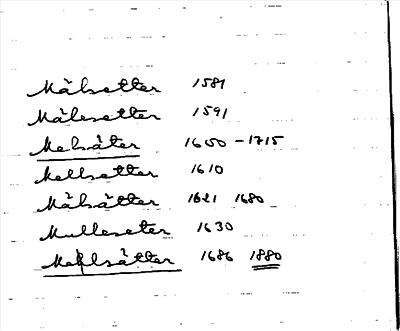 Målsetter 1581
Målesetter 1591
Melsåter 1600 - 1715
Mellsetter 1610
Målsätter 1621 1680
Mulleseter 1630
Mellsätter 1686 1880